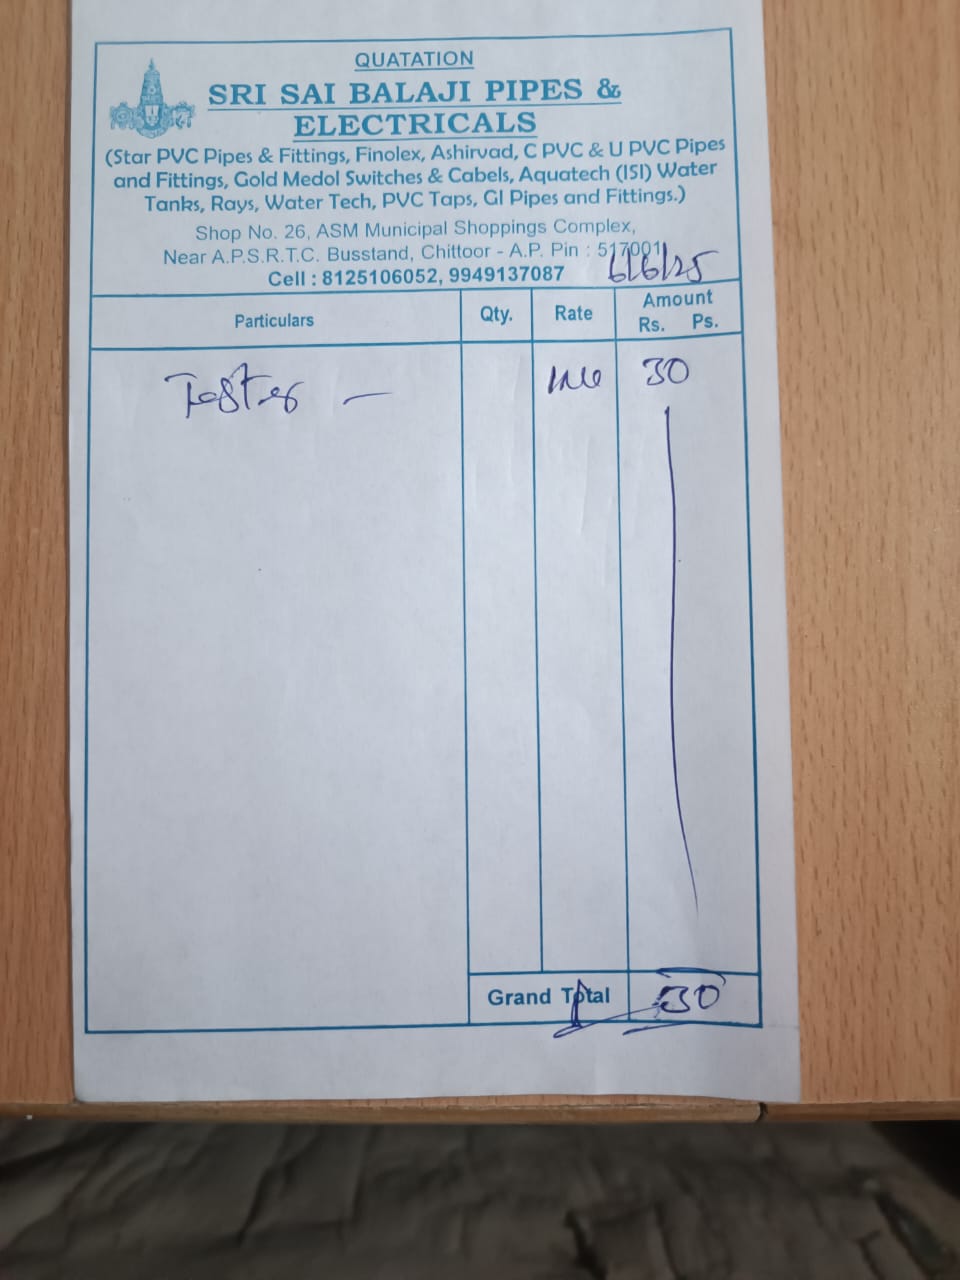 QUATATION
SRI SAI BALAJI PIPES &
ELECTRICALS
(Star PVC Pipes & Fittings, Finolex, Ashirvad, C PVC & U PVC Pipes
and Fittings, Gold Medol Switches & Cabels, Aquatech (ISI) Water
Tanks, Rays, Water Tech, PVC Taps, GI Pipes and Fittings.)
Shop No. 26, ASM Municipal Shoppings Complex,
Near A.P.S.R.T.C. Busstand, Chittoor - A.P. Pin : 517001
Cell : 8125106052, 9949137087 6/6/25
Particulars Qty. Rate Amount
Rs. Ps.
Tester — 30
Grand Total 30